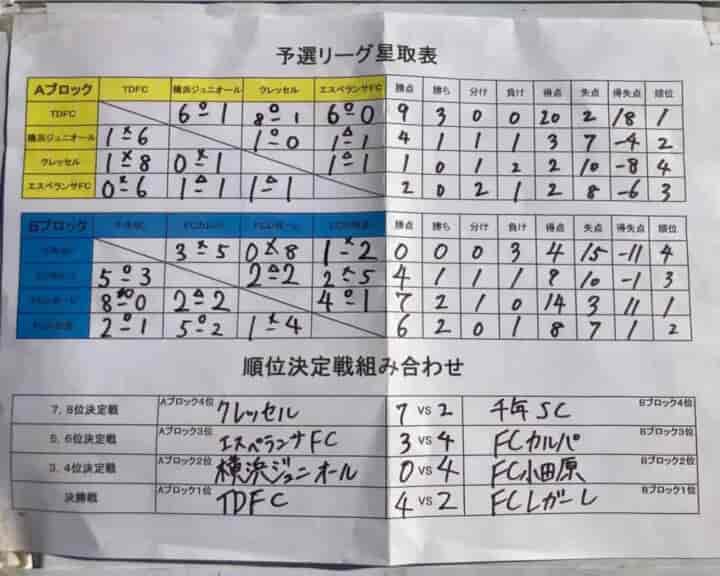 予選リーグ星取表
Aブロック TDFC 横浜ジュニオール クレッセル エスペランサFC 勝点 勝ち 分け 負け 得点 失点 得失点 順位
TDFC 6 o 1 8 o 1 6 o 0 9 3 0 0 20 2 18 1
横浜ジュニオール 1 x 6 1 o 0 1 △ 1 4 1 1 1 3 7 -4 2
クレッセル 1 x 8 0 x 1 1 △ 1 1 0 1 2 2 10 -8 4
エスペランサFC 0 x 6 1 △ 1 1 △ 1 2 0 2 1 2 8 -6 3
Bブロック 勝点 勝ち 分け 負け 得点 失点 得失点 順位
3 x 5 0 x 8 1 x 2 0 0 0 3 4 15 -11 4
5 o 3 2 △ 2 2 x 5 4 1 1 1 9 10 -1 3
8 o 0 2 △ 2 4 o 1 7 2 1 0 14 3 11 1
2 o 1 5 o 2 1 x 4 6 2 0 1 8 7 1 2
順位決定戦組み合わせ
7, 8位決定戦 Aブロック4位 クレッセル 7 vs 2 千年SC Bブロック4位
5, 6位決定戦 Aブロック3位 エスペランサFC 3 vs 4 FCカルパ Bブロック3位
3, 4位決定戦 Aブロック2位 横浜ジュニオール 0 vs 4 FC小田原 Bブロック2位
決勝戦 Aブロック1位 TDFC 4 vs 2 FCレガーレ Bブロック1位